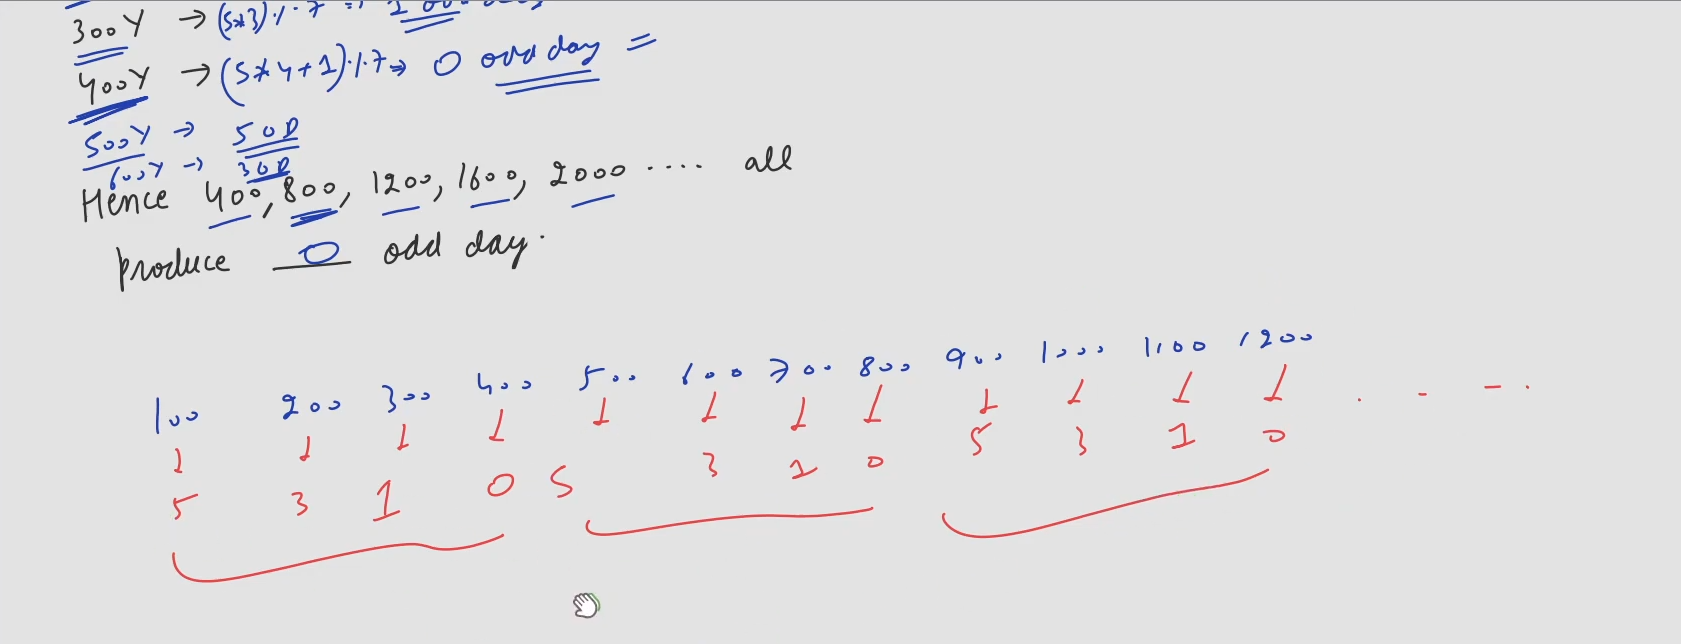 300Y → (5*3)%7 => 1 odd day
400Y → (5*4+1)%7 => 0 odd day =
500Y → 5 OD
600Y → 3 OD
Hence 400, 800, 1200, 1600, 2000 .... all
produce 0 odd day.
100 200 300 400 500 600 700 800 900 1000 1100 1200
5 3 1 0 5 3 1 0 5 3 1 0